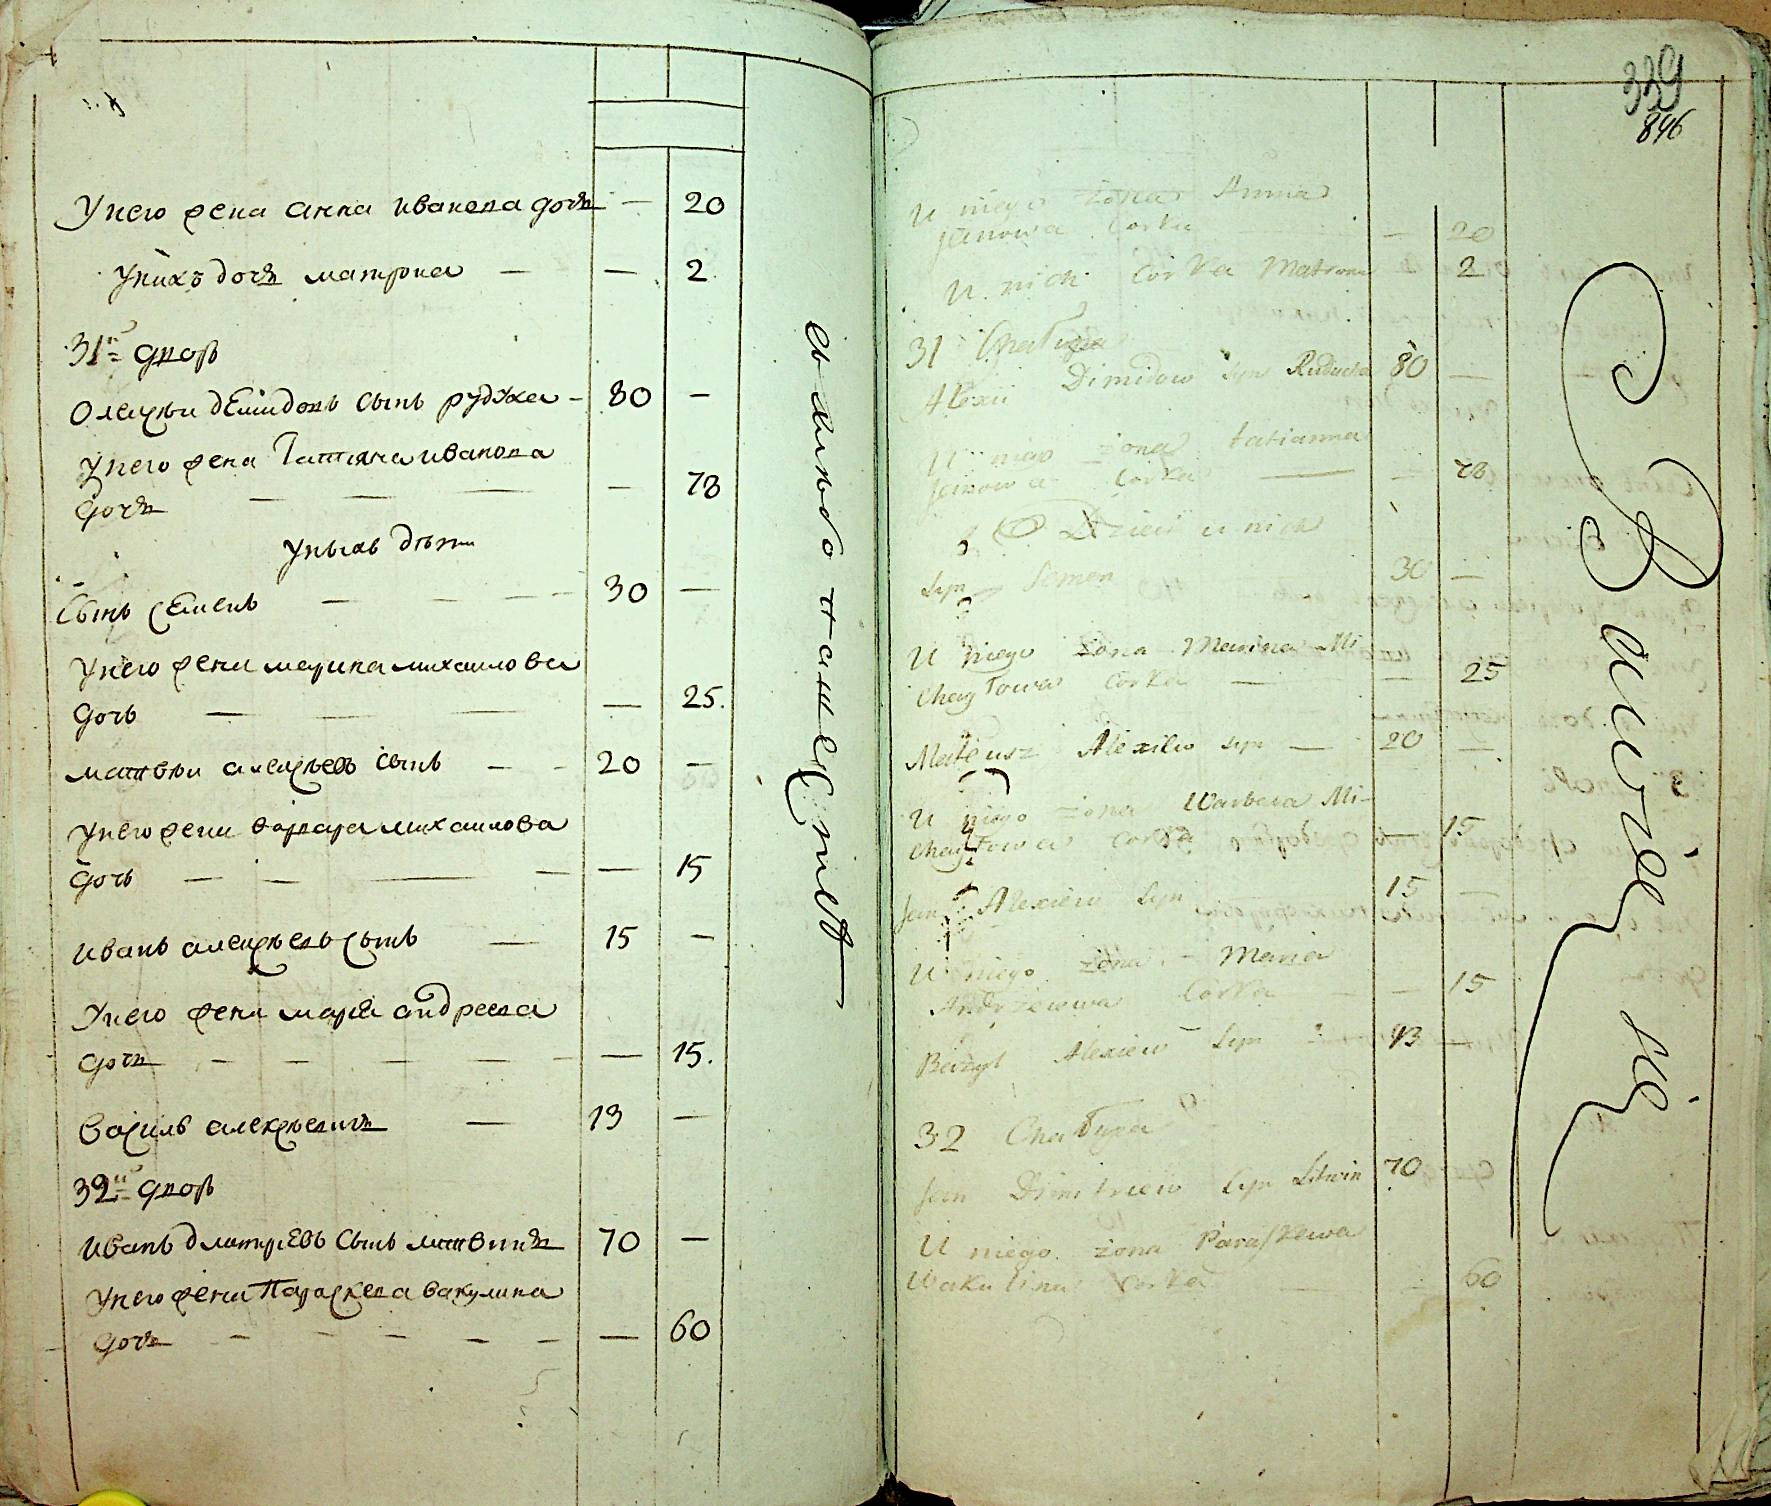 У него жена анна иванова дочь — 20
У них дочь матрона — — 2
31й двор
Олексѣи демидовъ сынъ рудужа — 80 —
У него жена Татияна иванова
дочь — — — — 78
У ных дѣти
Сынъ семенъ — — — 30 —
У него жена марина михаилова
дочь — — — — 25.
матвѣи алексѣевъ сынъ — — 20 —
У него жена варвара михаилова
дочь — — — — — 15
иванъ алексѣевъ сынъ — 15 —
У него жена мария андреева
дочь — — — — — — 15.
василь алексѣевичъ — 13 —
32й двор
иванъ дмитриевъ сынъ
70 —
У него жена Параскева вакулина
дочь — — — — — — 60
339
846
U niego żona Anna
Janowa Corka — 20
U nich Corka Matrona — 2
31 Chałupa
Alexii Dimidow Syn Ruducha 80 —
U niego żona tatianna
Janowa Corka — — 78
Dzieci u nich
Syn Semen 30 —
U niego żona Marina Mi-
chayłowa Corka — — 25
Mateusz Alexiew syn — 20 —
U niego żona Warbara Mi-
chayłowa Corka — 15
Jan Alexiew Syn 15 —
U niego żona — Maria
Andrzeiewa Corka — — 15
Bazyl Alexiew Syn — 13 —
32 Chałupa
Jan Dimitriew Syn Litwin 70
U niego żona Paraskewa
Wakulina Corka — — 60